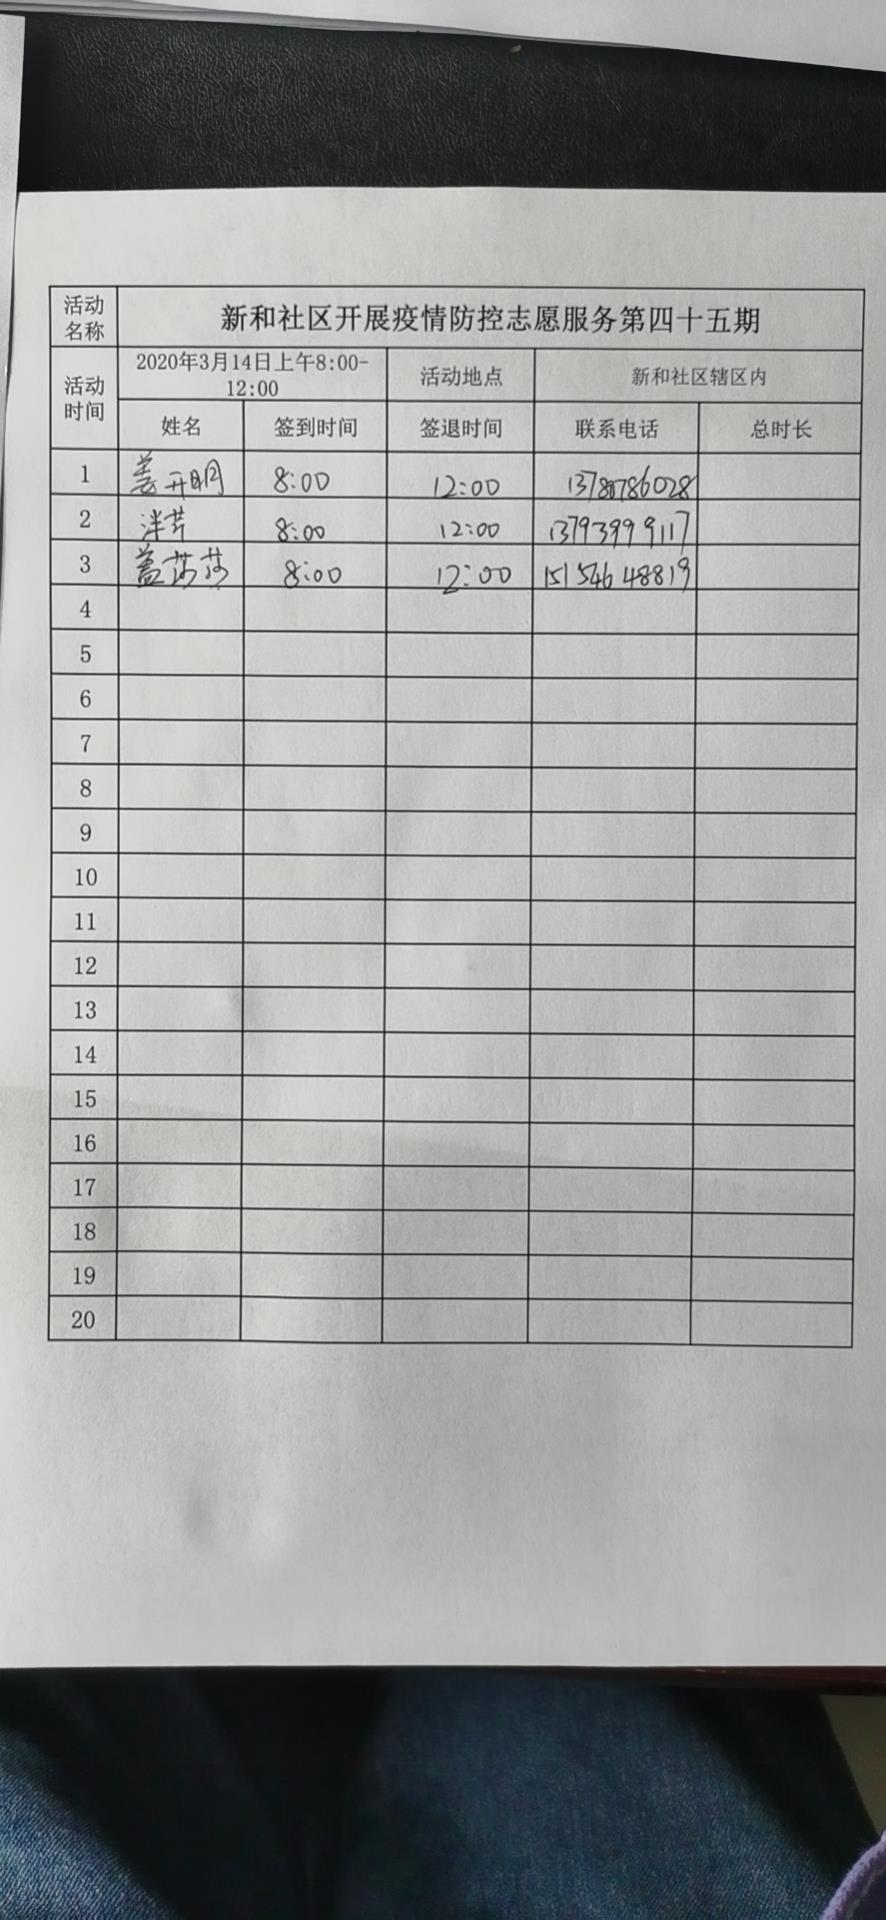 活动名称 新和社区开展疫情防控志愿服务第四十五期
活动时间 2020年3月14日上午8:00-12:00 活动地点 新和社区辖区内
姓名 签到时间 签退时间 联系电话 总时长
1 姜开明 8:00 12:00 13780786028
2 8:00 12:00 13793999117
3 盖莎莎 8:00 12:00 15154648819
4
5
6
7
8
9
10
11
12
13
14
15
16
17
18
19
20